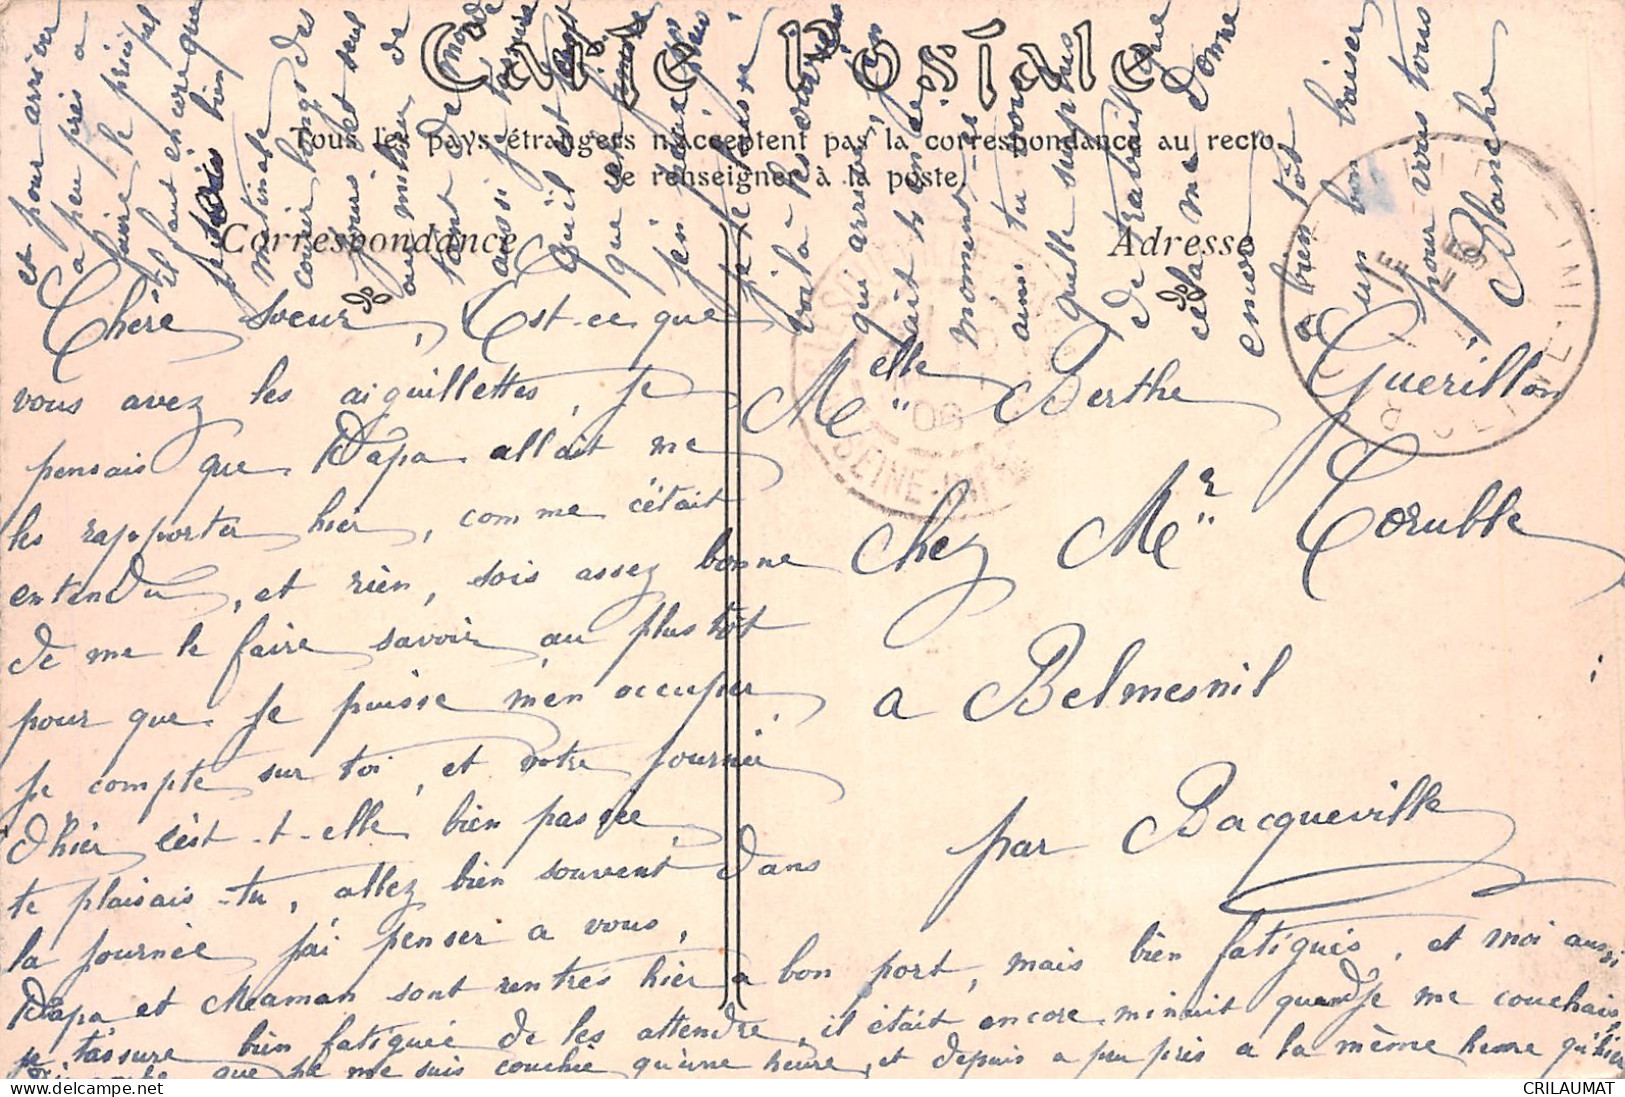 Carte Postale
Tous les pays étrangers n'acceptent pas la correspondance au recto.
Se renseigner à la poste.
Correspondance
Adresse
Chère soeur, Est-ce que
vous avez les aiguillettes, je
pensais que Papa allait me
les rapporter hier, comme c'était
entendu, et rien, sois assez bonne
de me le faire savoir au plus tôt
pour que je puisse m'en occuper
je compte sur toi, et votre journée
d'hier s'est-t-elle bien passée,
te plaisais-tu, allez bien souvent dans
la journée j'ai penser a vous,
Papa et Maman sont rentrés hier a bon port, mais bien fatigués, et moi aussi
je t'assure bien fatiguée de les attendre, il était encore minuit quand je me couchais,
que je me suis couchée qu'une heure, et depuis a peu près a la même heure qu'hier
et pour arriver
a peu près a
faire le
il faut encore que
bien
matinale
courir longs des
jours et seul
au milieu de
tant de monde
aussi je t'assure
qu'il est temps
que
j'en
je
voilà les ouvriers
qui arrive, j'en
fait le
moment
aussi tu
quelle surplus
de travail que
cela me donne
encore tôt
a bien
un bon baiser
pour vous tous
Blanche
Melle Berthe Guérillon
chez Mr Coruble
a Belmesnil
par Bacqueville
06
SEINE-INF
SEINE-IN
CRILAUMAT